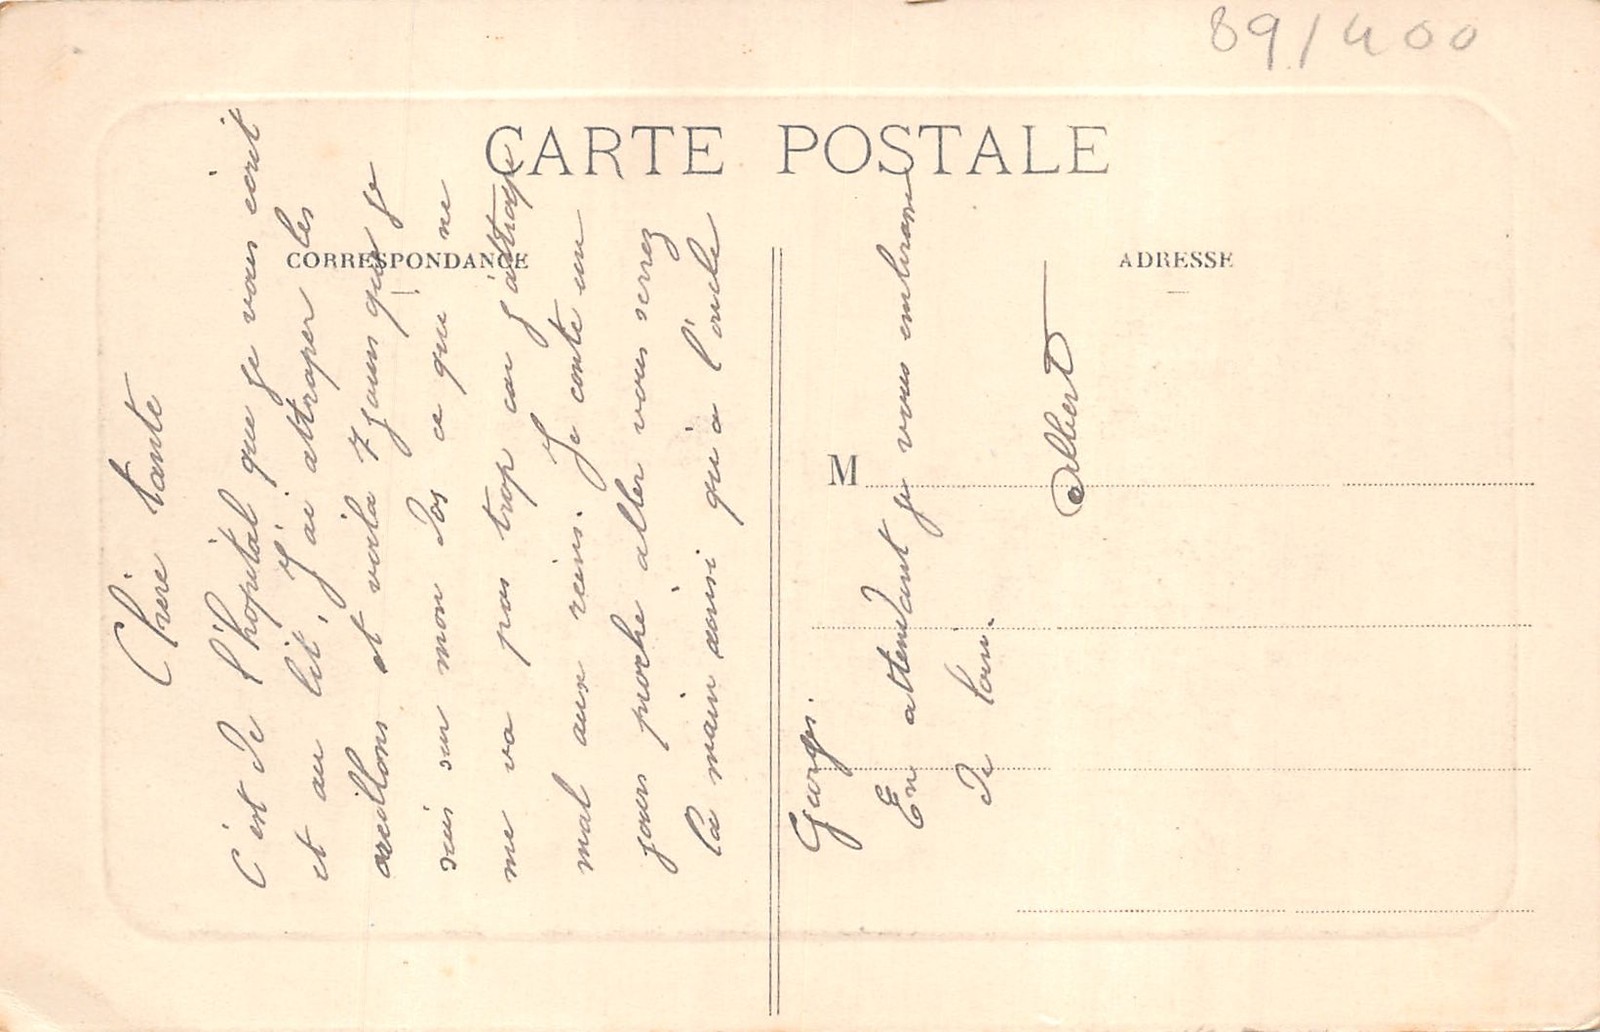 89/400
CARTE POSTALE
CORRESPONDANCE
ADRESSE
M
Chère tante
C'est de l'hopital que je vous ecrit
et au lit, J'ai attraper les
oreillons et voila 7 jours que je
suis sur mon dos ce qui ne
me va pas trop car j'attrape
mal aux reins. Je conte un
jours proche aller vous serrez
la main ainsi qu'a l'oncle
Georges.
En attendant je vous embrasse
de loin.
Albert